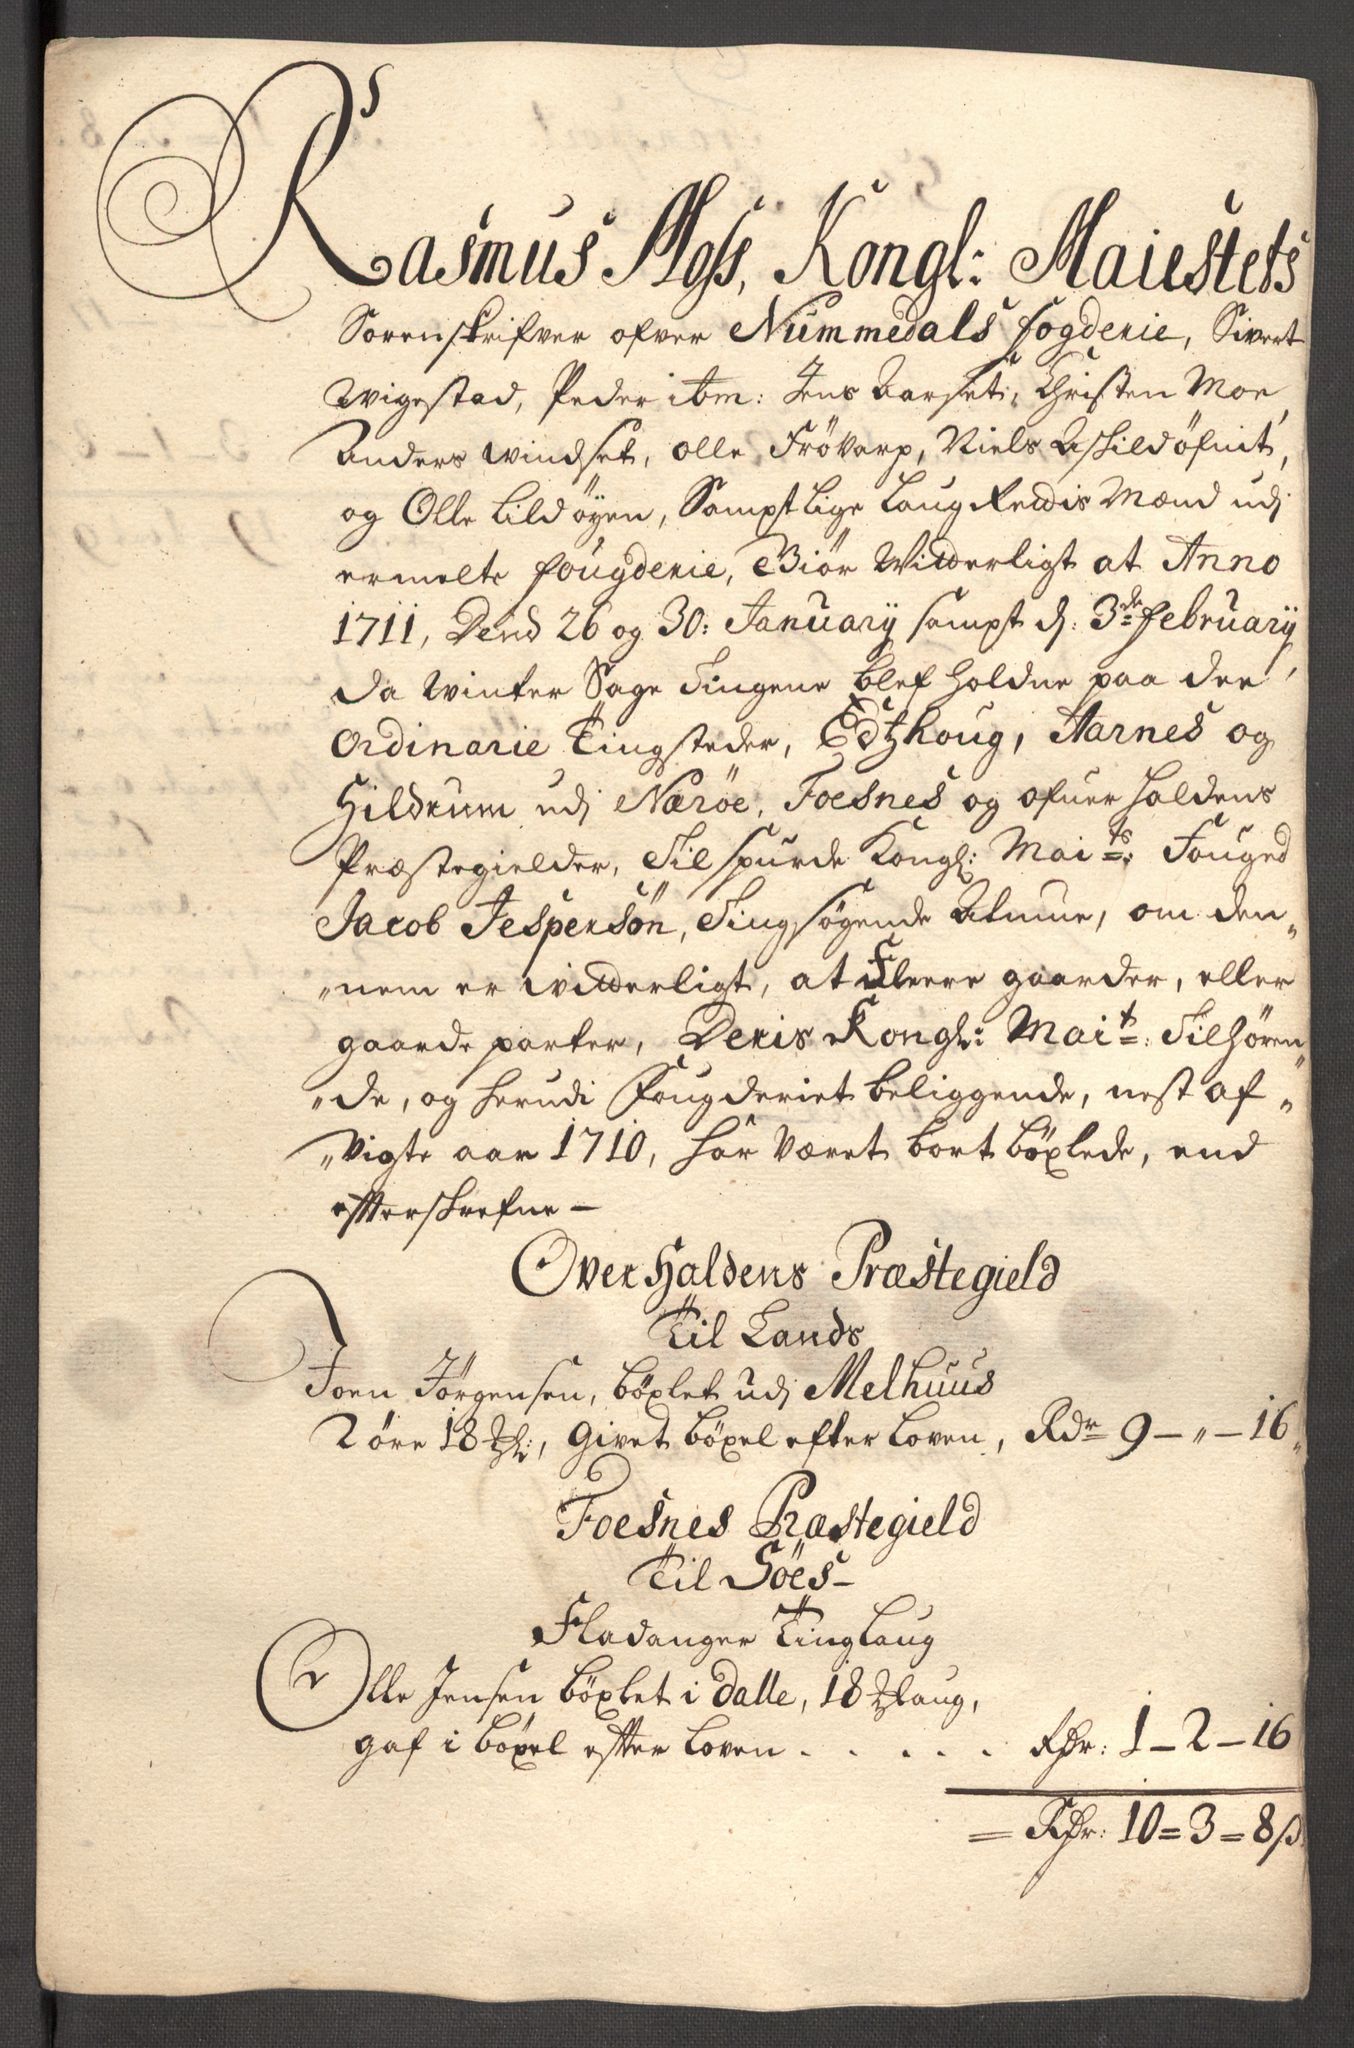 Rasmus Moss, Kongl: Maiestets
Sorenskrifver ofver Nummedals fogderie, Sivert
Wigestad, Peder ibm: Jens Aarset, Christen Moe,
Anders Windset, Olle Frövarp, Niels
og Olle Lildöÿen, Samptlige Laug Rettis Mænd udj
ermelte fougderie, Giör Witterligt at Anno
1711, Dend 26 og 30: Januarÿ sampt d: 3de februarÿ,
da Winter Sage Tingene blef holdne paa dee
Ordinarie Tingsteder, Edtzhoug, Aarnes og
Hildrum udj Nærøe, Foesnes og ofuer Haldens
Præstegielder, Tilspurde Kongl: Maits: Fouged
Jacob Jespersön, Tingsögende Almue, om den„
„nem er witterligt, at Fleere gaarder, eller
gaarde parter, Deris Kongl: Mait: Tilhören„
„de, og herudi Fougderiet beliggende, nest af„
„Vigte aar 1710, har Været bort böxlede, end
effterskrefne –
Over Haldens Præstegield
Til Lands
Joen Jörgensen, böxlet udj Melhuus
2 öre 18 Mkl:, Givet böxel efter Loven, Rdr 9 – „ – 16„
Foesnes Præstegield
Til Söes –
Fladanger Tinglaug
Olle Jensen böxlet i Dalle, 18 Mklaug,
gaf i böxel effter Loven . . . . . Rdr: 1 – 2 – 16
= Rdr: 10 = 3 = 8 ß